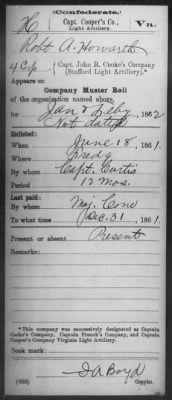 (Confederate.)
H Capt. Cooper's Co., Va.
Light Artillery.*
Robt A. Howarth
4 Cp Capt. John R. Cooke's Company
(Stafford Light Artillery).*
Appears on
Company Muster Roll
of the organization named above,
for Jan & Feby, 1862
Not dated
Enlisted:
When June 18, 1861.
Where Fredg
By whom Capt. Curtis
Period 12 Mos.
Last paid:
By whom Maj. Cone
To what time Dec. 31, 1861.
Present or absent Present
Remarks:
*This company was successively designated as Captain
Cooke's Company, Captain French's Company, and Captain
Cooper's Company Virginia Light Artillery.
Book mark:
J A Boyd
(642) Copyist.